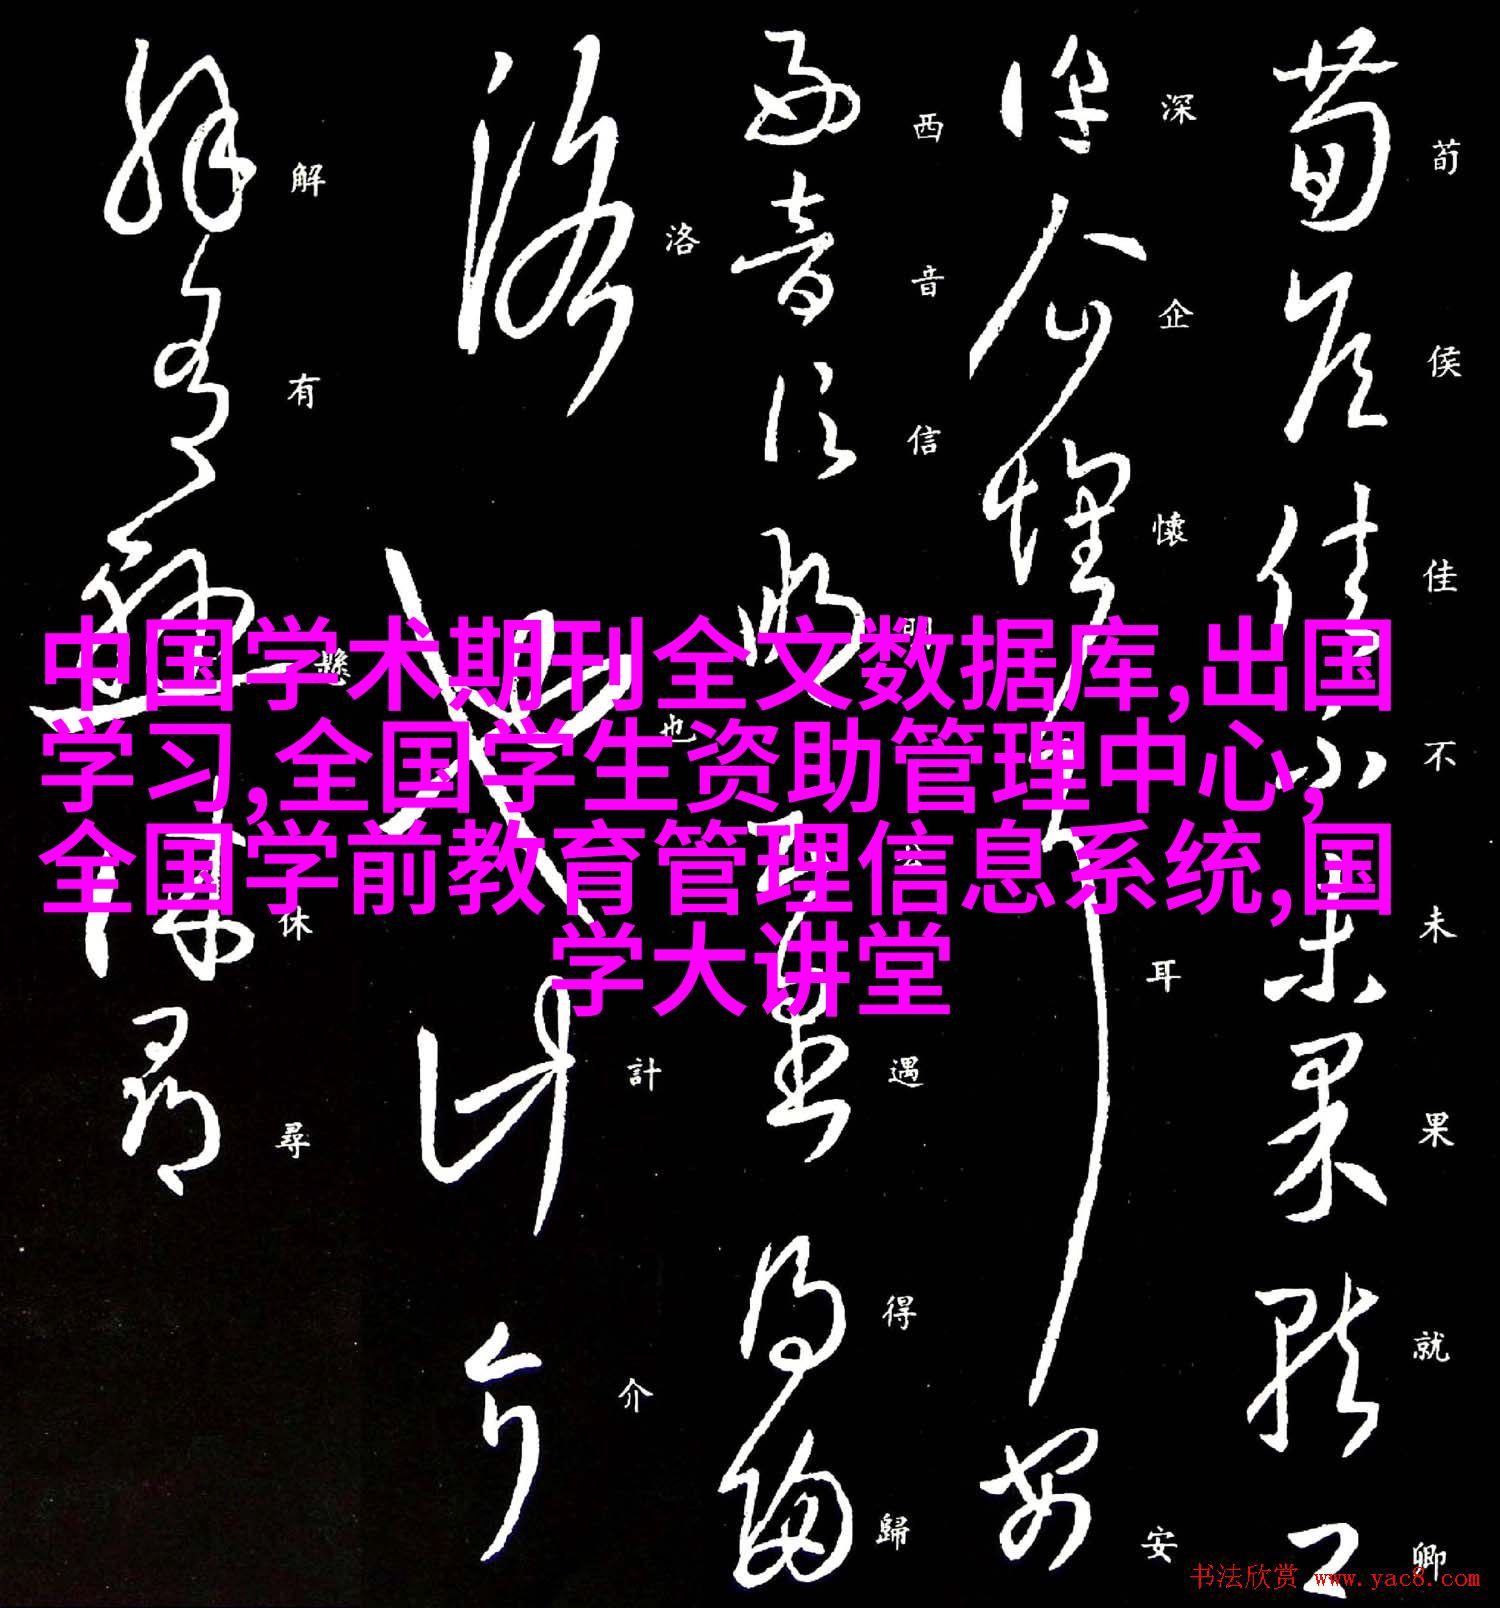 中国学术期刊全文数据库,出国
学习,全国学生资助管理中心,
全国学前教育管理信息系统,国
学大讲堂
荀侯佳不未果就卿
深企懷耳安
西音信遇得歸
洛也計介
解有懸休尋
书法欣赏 www.yac8.com